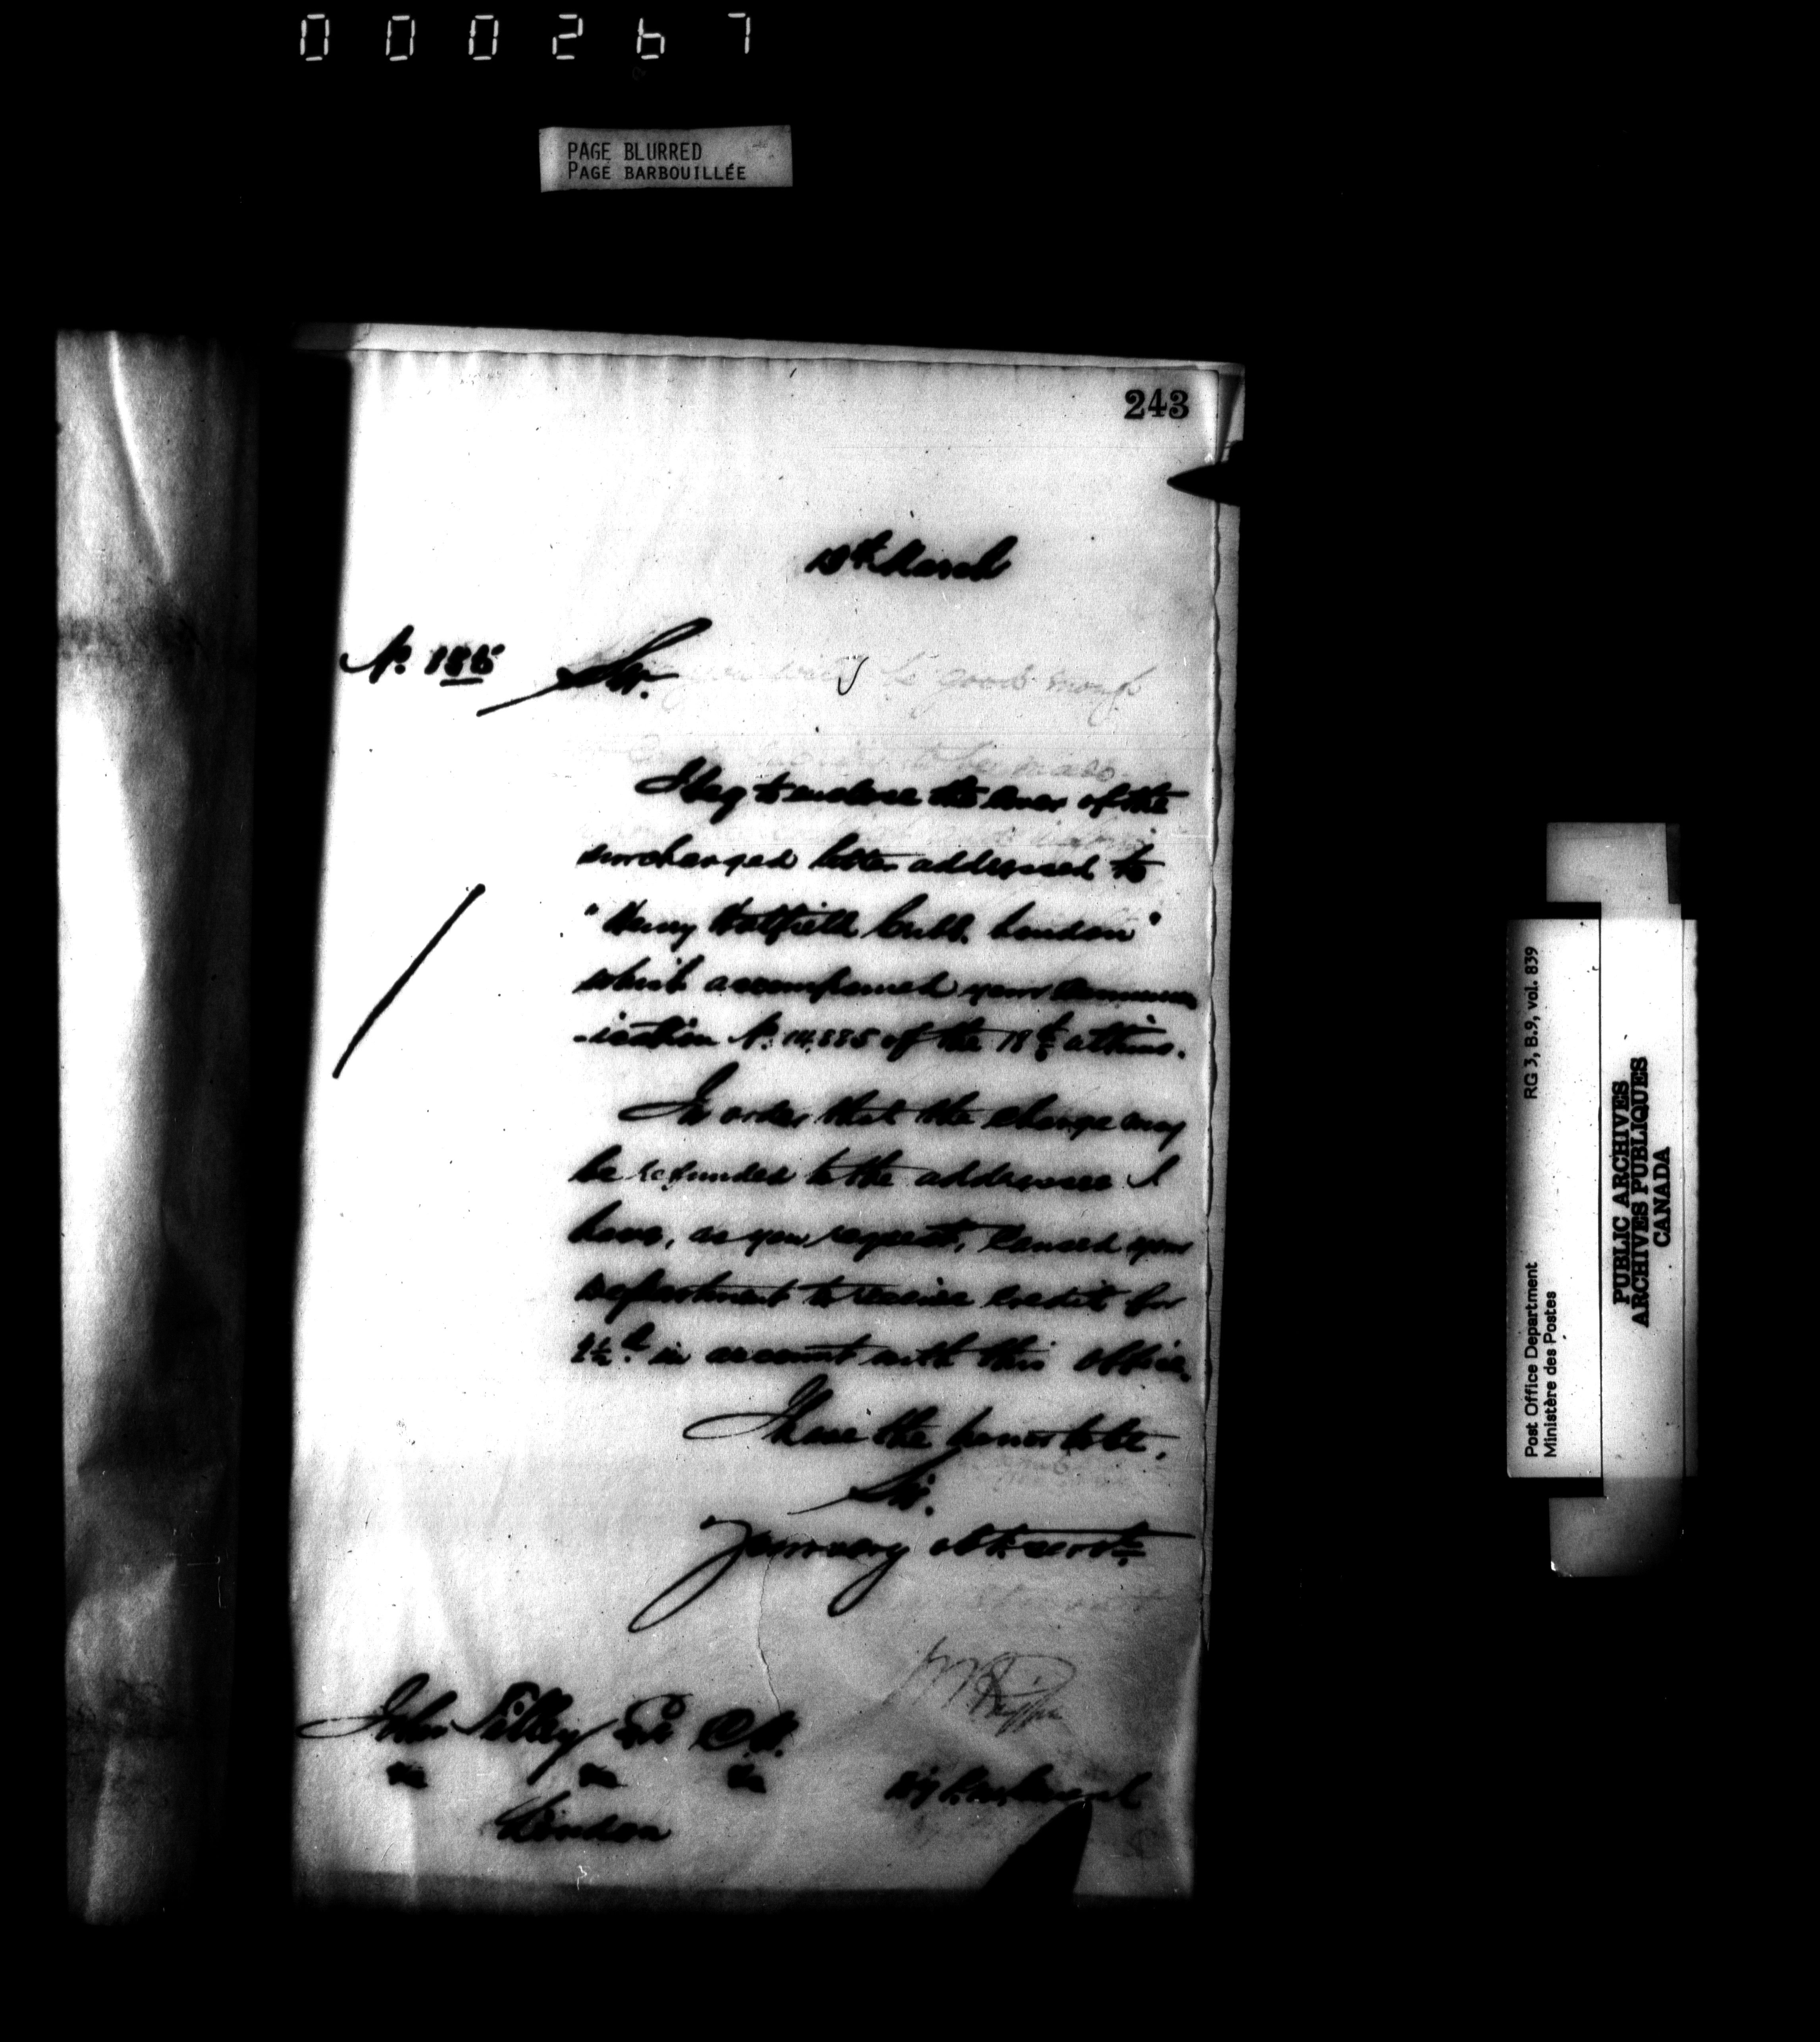 000267
PAGE BLURRED
PAGE BARBOUILLÉE
243
13th March
No. 186
Sir.
I beg to enclose the cover of the
surcharged letter addressed to
"Henry Hatfield Cubb. London"
which accompanied your commun
-ication No. 14,885 of the 18th ultimo.
In order that the charge may
be refunded to the addressee I
have, as you request, caused your
Department to receive credit for
1½d in account with this office.
I have the honor to be,
Sir.
Your very obt. servt.
John Tilley Esq C.B.
&c &c &c
London
Post Office Department
Ministère des Postes
RG 3, B.9, vol. 839
PUBLIC ARCHIVES
ARCHIVES PUBLIQUES
CANADA